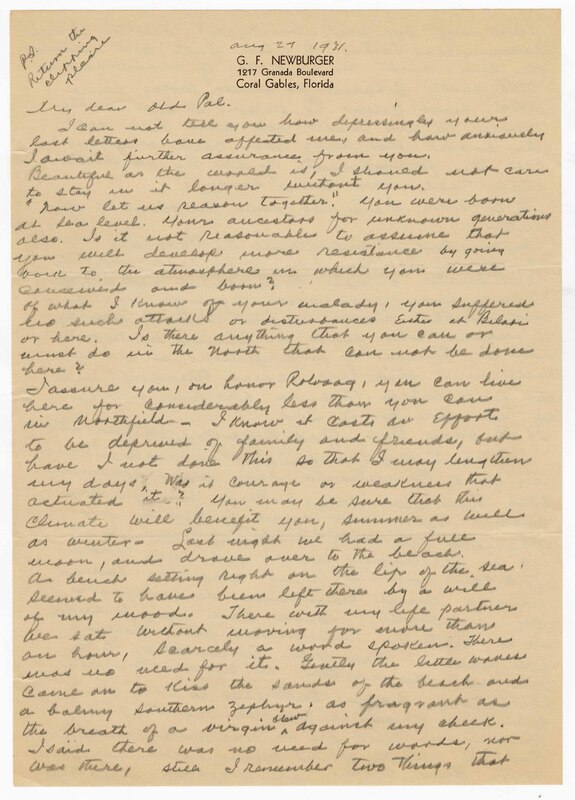 P.S.
Return the
clipping
please
Aug 27 1931.
G. F. NEWBURGER
1217 Granada Boulevard
Coral Gables, Florida
My dear Old Pal.
I can not tell you how depressingly your
last letters have affected me, and how anxiously
I await further assurance from you.
Beautiful as the world is, I should not care
to stay in it longer without you.
"Now let us reason together." You were born
at sea level. Your ancestors for unknown generations
also. Is it not reasonable to assume that
you will develop more resistance by going
back to the atmosphere in which you were
conceived and born?
Of what I know of your malady, you suffered
no such attacks or disturbances Either at Biloxi
or here. Is there anything that you can or
must do in the North that can not be done
here?
I assure you, on honor Rolvaag, you can live
here for considerably less than you can
in Northfield - I know it costs an Effort
to be deprived of family and friends, but
have I not done this so that I may lengthen
my days. Was it courage or weakness that
actuated it? You may be sure that this
Climate will benefit you, summer as well
as winter - Last night we had a full
moon, and drove over to the beach.
A bench setting right on the lip of the sea
seemed to have been left there by a will
of my mood. There with my life partner
we sat without moving for more than
an hour, scarcely a word spoken. There
was no need for it. Gently the little waves
came on to kiss the sands of the beach and
a balmy southern zephyr, as fragrant as
the breath of a virgin blew against my cheek.
I said there was no need for words, nor
was there, still I remember two things that